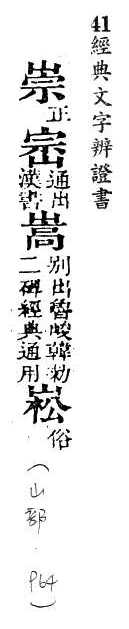 41 經典文字辨證書
崇正崈通出漢書嵩別出魯峻韓勑二碑經典通用崧俗
(山部.p64)